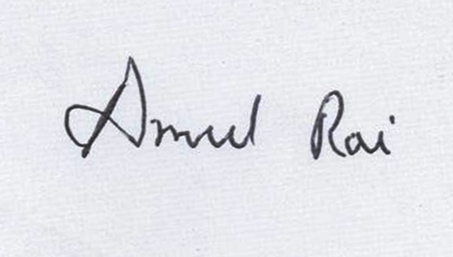 Amul Rai